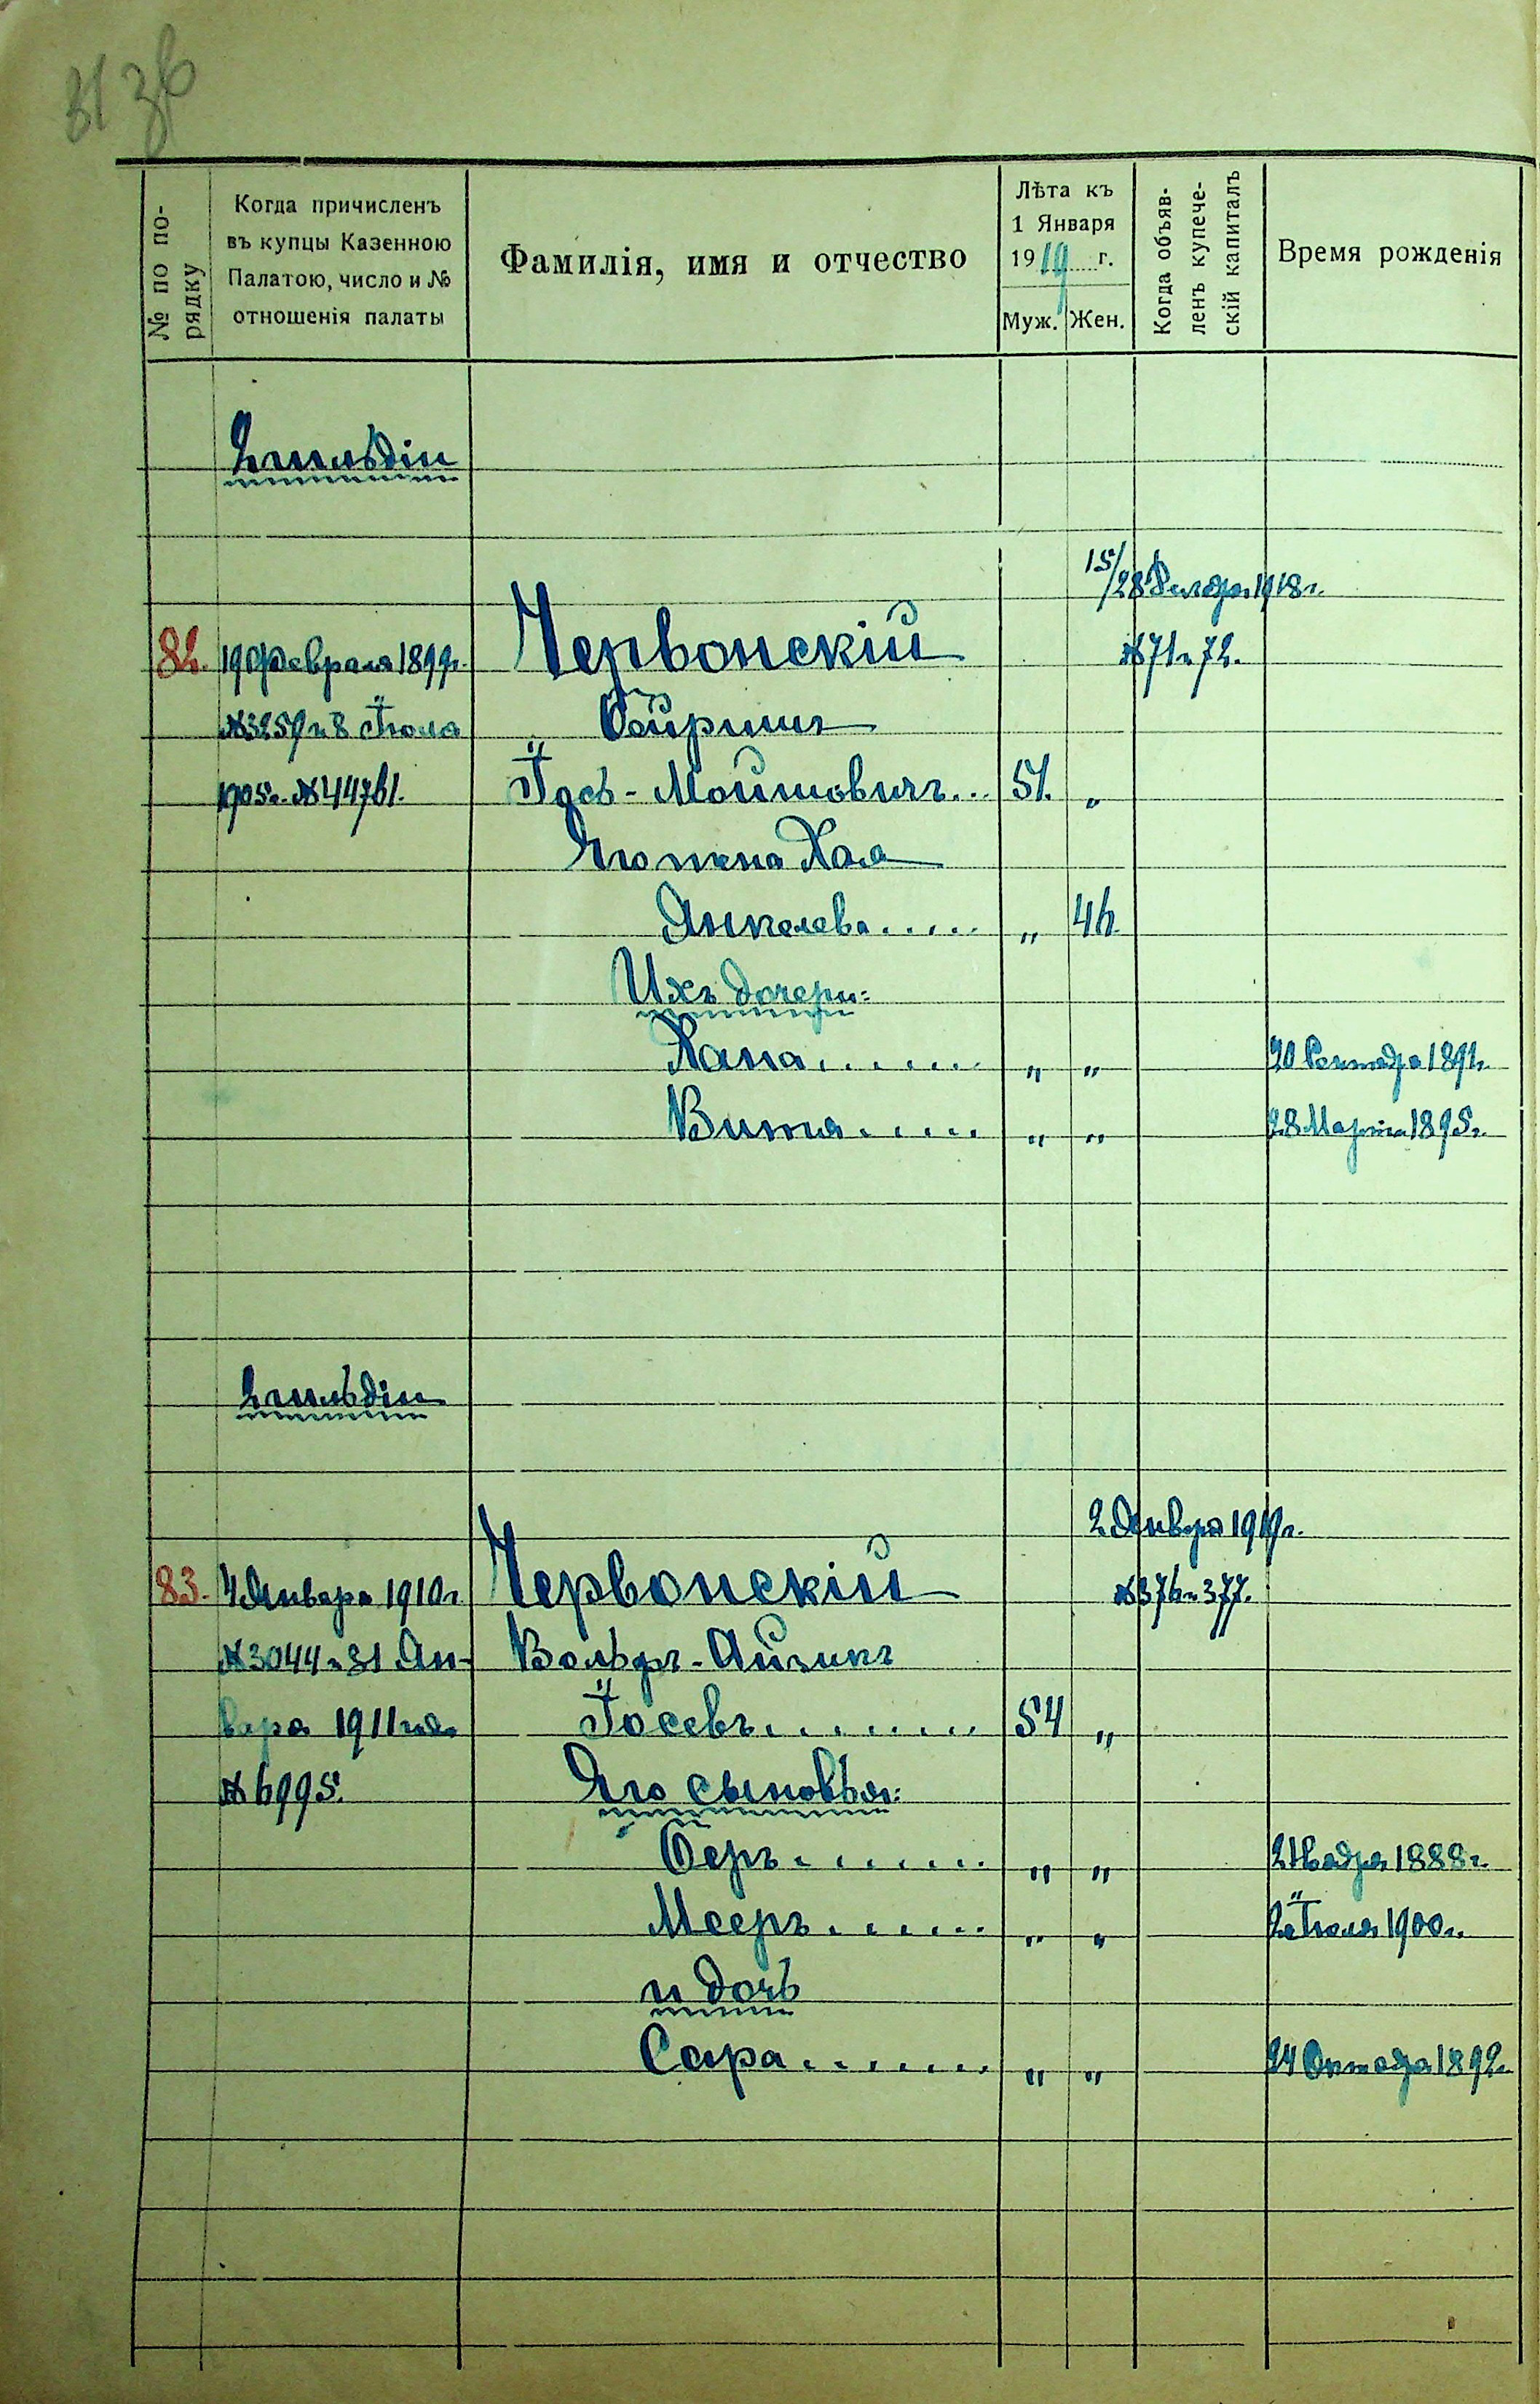 36
№ по по-
рядку
Когда причисленъ
въ купцы Казенною
Палатою, число и №
отношенія палаты
Фамилія, имя и отчество
Лѣта къ
1 Января
1919 г.
Муж. Жен.
Когда объяв-
ленъ купече-
скій капиталъ
Время рожденія
15/28 Декабря 1918 г.
82. 19 Февраля 1899 г. Червонскій №71 и 72.
№3257 и 8 Іюля
1905 г. №44761. Іось-Мойшовичъ... 51. „
Его жена Хая
Янкелева..... „ 46.
Ихъ дочери:
Хана....... „ „ 20 Сентября 1891 г.
Витя..... „ „ 28 Марта 1895 г.
2 Января 1919 г.
83. 4 Января 1910 г. Червонскій №376 и 377.
№3044 и 31 Ян- Вольфъ-Айзикъ
варя 1911 года Іосевъ........ 54 „
№6995. Его сыновья:
Беръ....... „ „ 2 Ноября 1888 г.
Мееръ...... „ „ 2 Іюля 1900 г.
и дочь
Сара....... „ „ 24 Октября 1892 г.